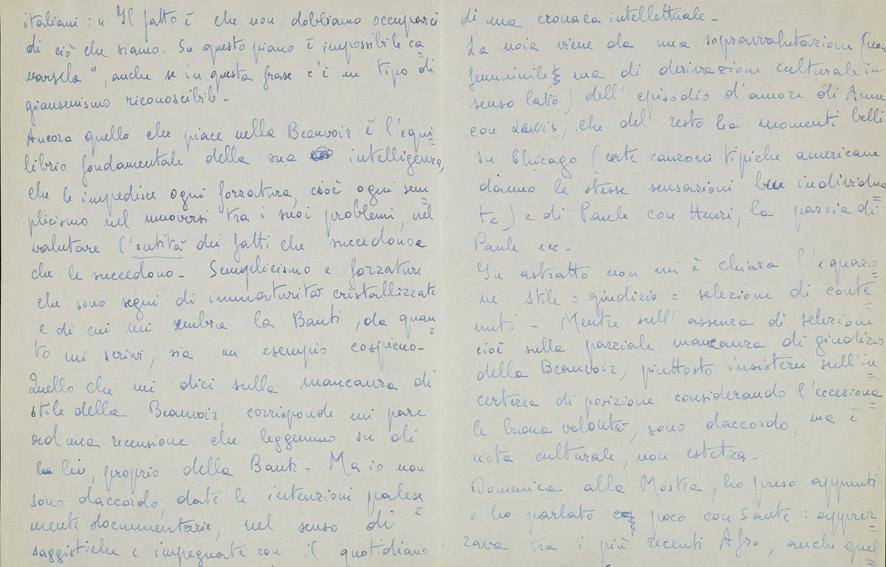 italiani: " Il fatto è che non dobbiamo occuparci
di ciò che siamo. Su questo piano è impossibile ca=
varsela", anche se in questa frase c'è un tipo di
giansenismo riconoscibile.
Ancora quello che piace nella Beauvoir è l'equi=
librio fondamentale della sua intelligenza,
che le impedisce ogni forzatura, cioè ogni sem=
plicismo nel muoversi tra i suoi problemi, nel
valutare l'entità dei fatti che succedono e
che le succedono. Semplicismo e forzature
che sono segni di immaturità cristallizzate
e di cui mi sembra la Banti, da quan=
to mi scrivi, sia un esempio cospicuo.
Quello che mi dici sulla mancanza di
stile della Beauvoir, corrisponde mi pare
ad una recensione che leggemmo su di
lei, proprio della Banti. Ma io non
sono daccordo, date le intenzioni palese=
mente documentarie, nel senso di
saggistiche e impegnate con il quotidiano
di una cronaca intellettuale.
La noia viene da una sopravvalutazione (non
femminile ma di derivazione culturale in
senso lato) dell'episodio d'amore di Anne
con Lewis, che del resto ha momenti belli
su Chicago (certe canzoni tipiche americane
danno le stesse sensazioni ben individua=
te) e di Paule con Henri, la pazzia di
Paule ecc.
In astratto non mi è chiara l'equazio=
ne stile = giudizio = selezione di conte=
nuti. Mentre sull'assenza di selezione
cioè sulla parziale mancanza di giudizio
della Beauvoir, piuttosto insisterei sull'in=
certezza di posizione considerando l'ecceziona=
le buona volontà, sono daccordo, ma è
nota culturale, non estetica.
Domenica alla Mostra, ho preso appunti
e ho parlato poco con Sante: apprez=
zava tra i più recenti Afro, anche quel=